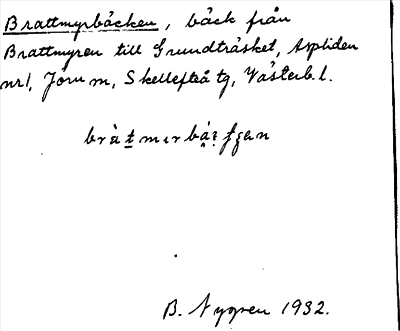 Brattmyrbäcken, bäck från
Brattmyren till Grundträsket, Aspliden
nr1, Jörn m, Skellefteå tg, Västerb. l.
B. Nygren 1932.